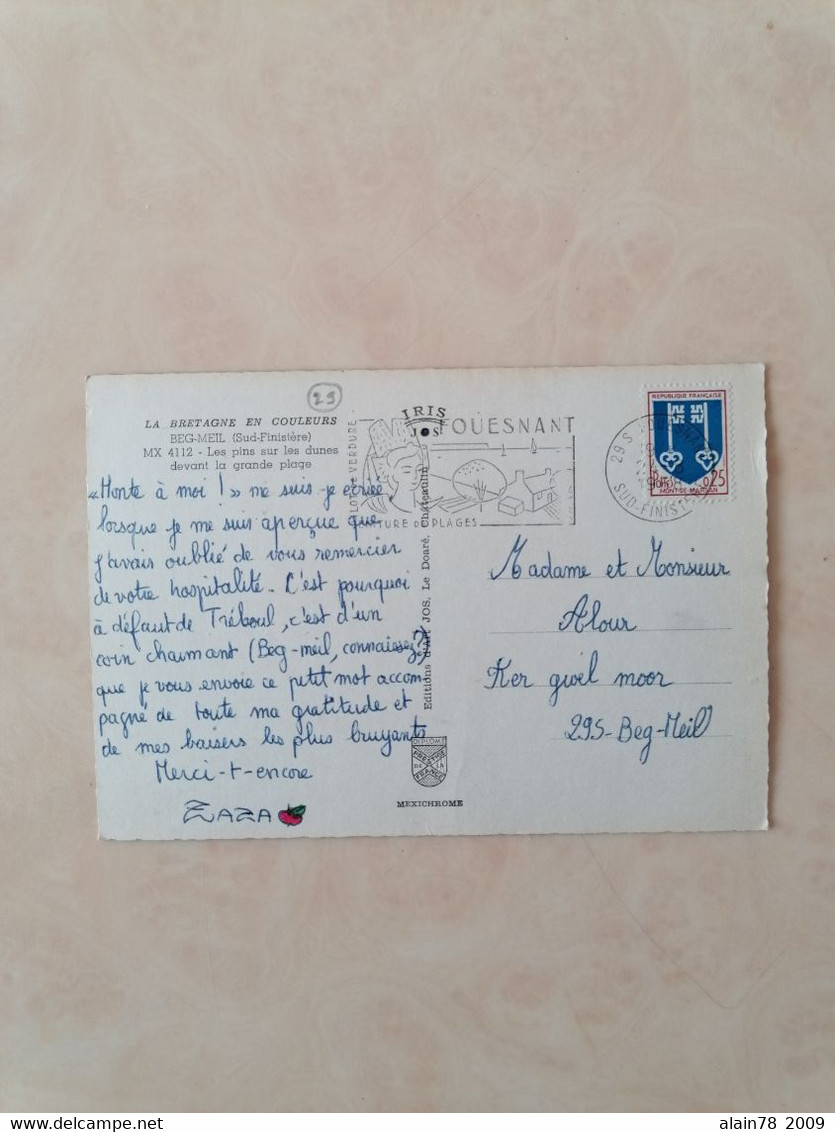 29
LA BRETAGNE EN COULEURS
BEG-MEIL (Sud-Finistère)
MX 4112 - Les pins sur les dunes
devant la grande plage
« Honte à moi ! » me suis-je écriée
lorsque je me suis aperçue que
j'avais oublié de vous remercier
de votre hospitalité. C'est pourquoi
à défaut de Tréboul, c'est d'un
coin charmant (Beg-meil, connaissez ?)
que je vous envoie ce petit mot accom-
pagné de toute ma gratitude et
de mes baisers les plus bruyants
Merci-t-encore
ZAZA
IRIS
JOS
Editions d'Art JOS, Le Doaré, Châteaulin
DIPLOME
PRESTIGE
DE LA
FRANCE
MEXICHROME
FOUESNANT
VERDURE
CEINTURE DE PLAGES
REPUBLIQUE FRANÇAISE
0,25
MONT-DE-MARSAN
29S
SUD-FINIST
Madame et Monsieur
Alour
Ker gwel moor
29S-Beg-Meil
alain78 2009